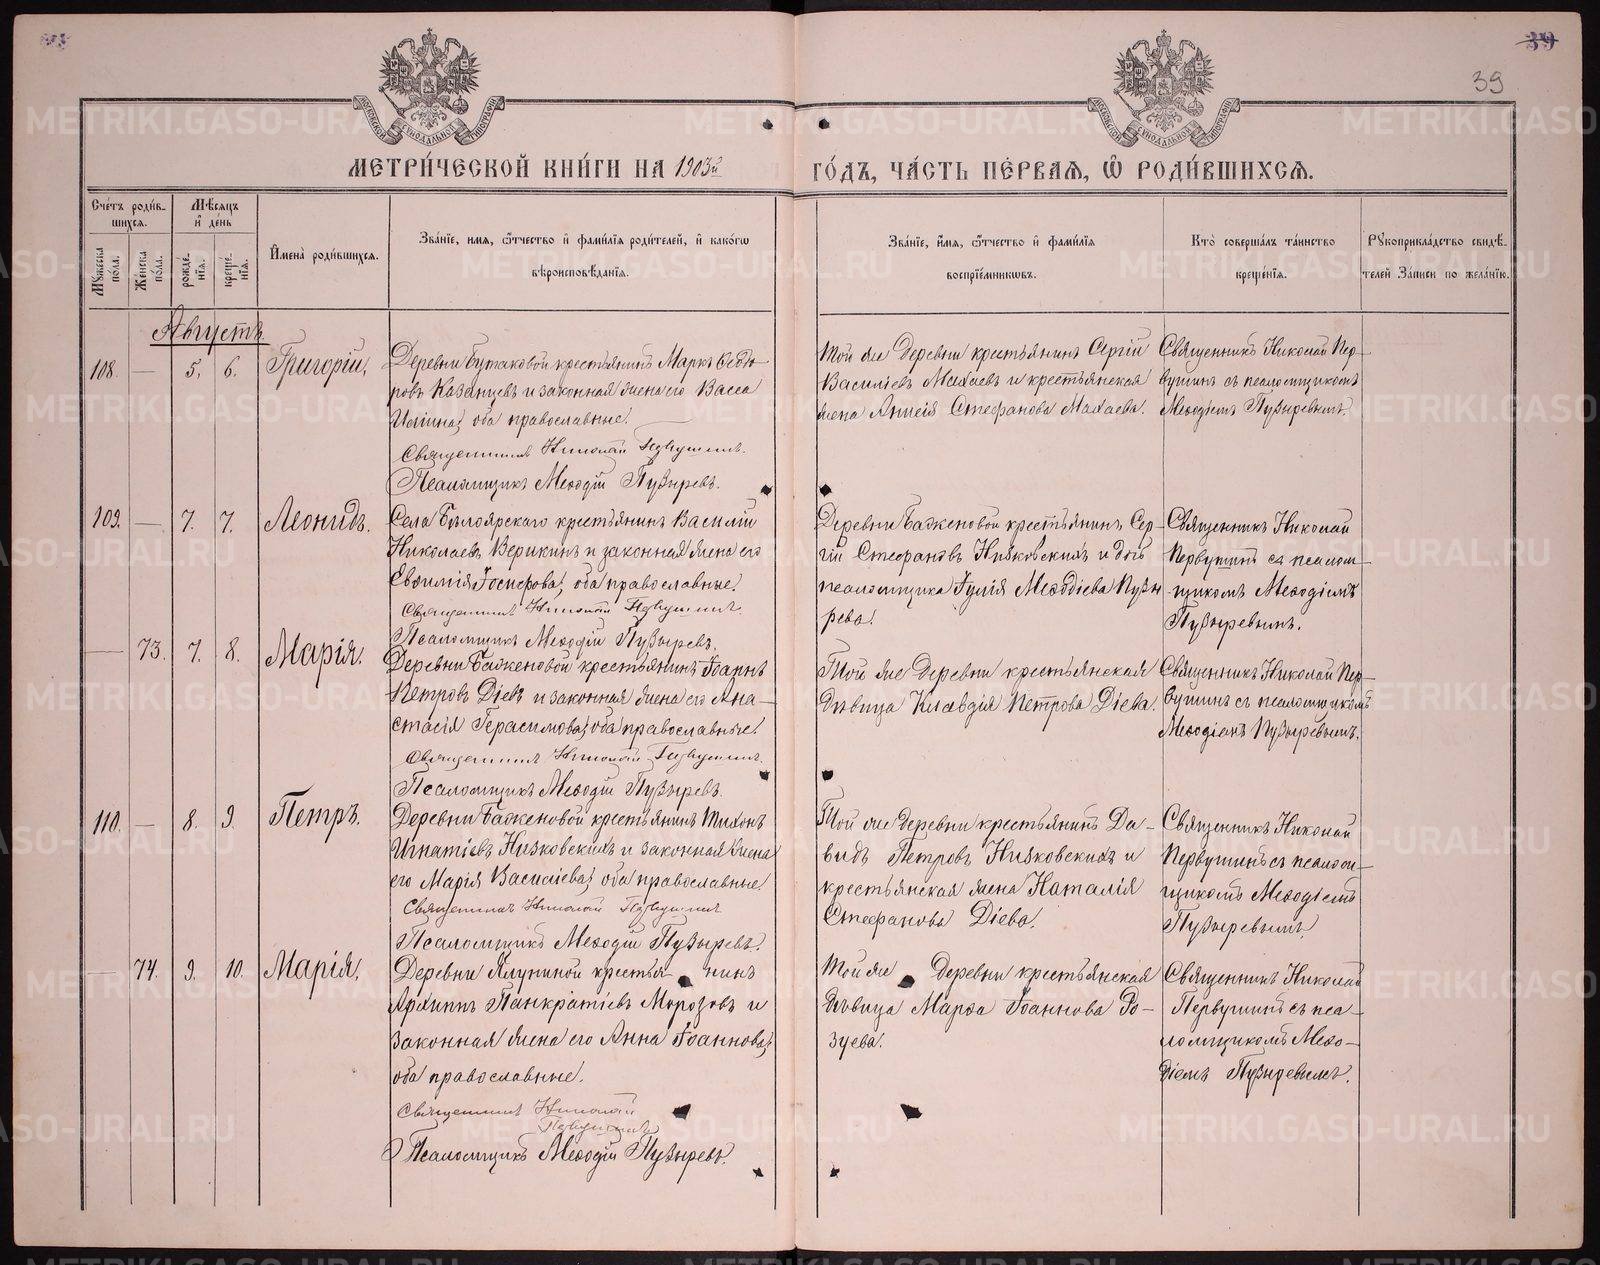 39
39
МЕТРИЧЕСКОЙ КНИГИ НА 1903й ГОДЪ, ЧАСТЬ ПЕРВАЯ, Ѡ РОДИВШИХСЯ.
Счетъ родив-
шихся.
Мужеска пола.
Женска пола.
Мѣсяцъ и день
рожде-
нія.
креще-
нія.
Имена родившихся.
Званіе, имя, ѿчество и фамилія родителей, и какогѡ
вѣроисповѣданія.
Званіе, имя, ѿчество и фамилія
воспріемникѡвъ.
Кто совершалъ таинство
крещенія.
Рукоприкладство свидѣ-
телей Записи по желанію.
Августъ
108. — 5. 6. Григорій.
Деревни Бутаковой крестьянинъ Маркъ Ѳедо-
ровъ Казанцевъ и законная жена его Васса
Ильина; оба православные.
Священникъ Николай Первушинъ.
Псаломщикъ Меѳодій Пузыревъ.
Той же деревни крестьянинъ Сергій
Василіевъ Махаевъ и крестьянская
жена Стефанова Махаева.
Священникъ Николай Пер-
вушинъ съ псаломщикомъ
Меѳодіемъ Пузыревымъ.
109. — 7. 7. Леонидъ.
Села Бѣлоярскаго крестьянинъ Василій
Николаевъ Верикинъ и законная жена его
Евѳимія Іосифова; оба православные.
Священникъ Николай Первушинъ.
Псаломщикъ Меѳодій Пузыревъ.
Деревни Баженовой крестьянинъ Сер-
гій Стефановъ Низковскихъ и дочь
псаломщика Іулія Меѳодіева Пузы
рева.
Священникъ Николай
Первушинъ съ псалом-
щикомъ Меѳодіемъ
Пузыревымъ.
— 73. 7. 8. Марія.
Деревни Баженовой крестьянинъ Іоаннъ
Петровъ Діевъ и законная жена его Ана-
стасія Герасимова; оба православные.
Священникъ Николай Первушинъ.
Псаломщикъ Меѳодій Пузыревъ.
Той же деревни крестьянская
дѣвица Клавдія Петрова Діева.
Священникъ Николай Пер-
вушинъ съ псаломщикомъ
Меѳодіемъ Пузыревымъ.
110. — 8. 9. Петръ.
Деревни Баженовой крестьянинъ Тихонъ
Игнатіевъ Низковскихъ и законная жена
его Марія Василіева; оба православные.
Священникъ Николай Первушинъ
Псаломщикъ Меѳодій Пузыревъ.
Той же деревни крестьянинъ Да-
видъ Петровъ Низковскихъ и
крестьянская жена Наталія
Стефанова Діева.
Священникъ Николай
Первушинъ съ псалом-
щикомъ Меѳодіемъ
Пузыревымъ.
— 74. 9. 10. Марія.
Деревни Ялуниной крестья- нинъ
Архиппъ Панкратіевъ Морозовъ и
законная жена его Анна Іоаннова;
оба православные.
Священникъ Николай
Первушинъ
Псаломщикъ Меѳодій Пузыревъ.
Той же деревни крестьянская
дѣвица Марѳа Іоаннова Ро-
зуева.
Священникъ Николай
Первушинъ съ пса-
ломщикомъ Меѳо-
діемъ Пузыревымъ.